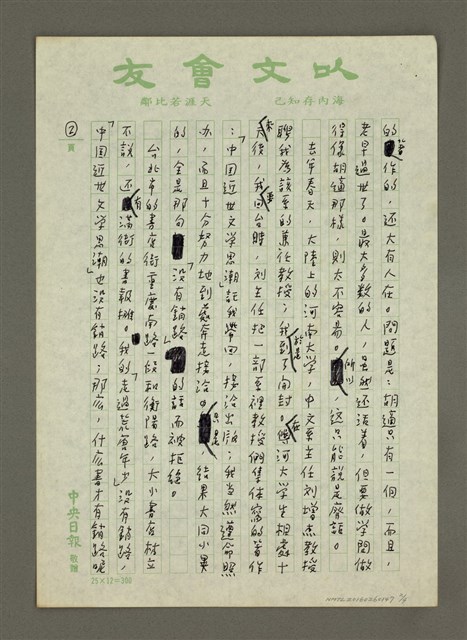 以文會友
海內存知己
天涯若比鄰
的著作的，还大有人在。問題是：胡適只有一個，而且，
老早過世了。最大多数的人，虽然还活着，但要做学問做
得像胡適那樣，則太不容易。所以，这只能說是廢話。
去年春天，大陸上的河南大学，中文系主任刘增杰教授
聘我为該系的兼任教授；我於是到了開封。在與河大学生相處十
天後，我要回台時，刘主任把一部系裡教授們集体寫的著作
：「中国近世文学思潮」託我帶回，接洽出版；我当然遵命照
办，而且十分努力地到處奔走接洽。只是結果大同小異
的，全是那句「没有銷路」的話而被拒絶。
台北市的書店街重慶南路一段和衡陽路，大小書店林立
不說，还有滿街的書報攤。我的「走過荒年」没有銷路，
「中国近世文学思潮」也没有銷路；那么，什么書才有銷路呢
②
頁
中央日報
敬贈
25×12=300